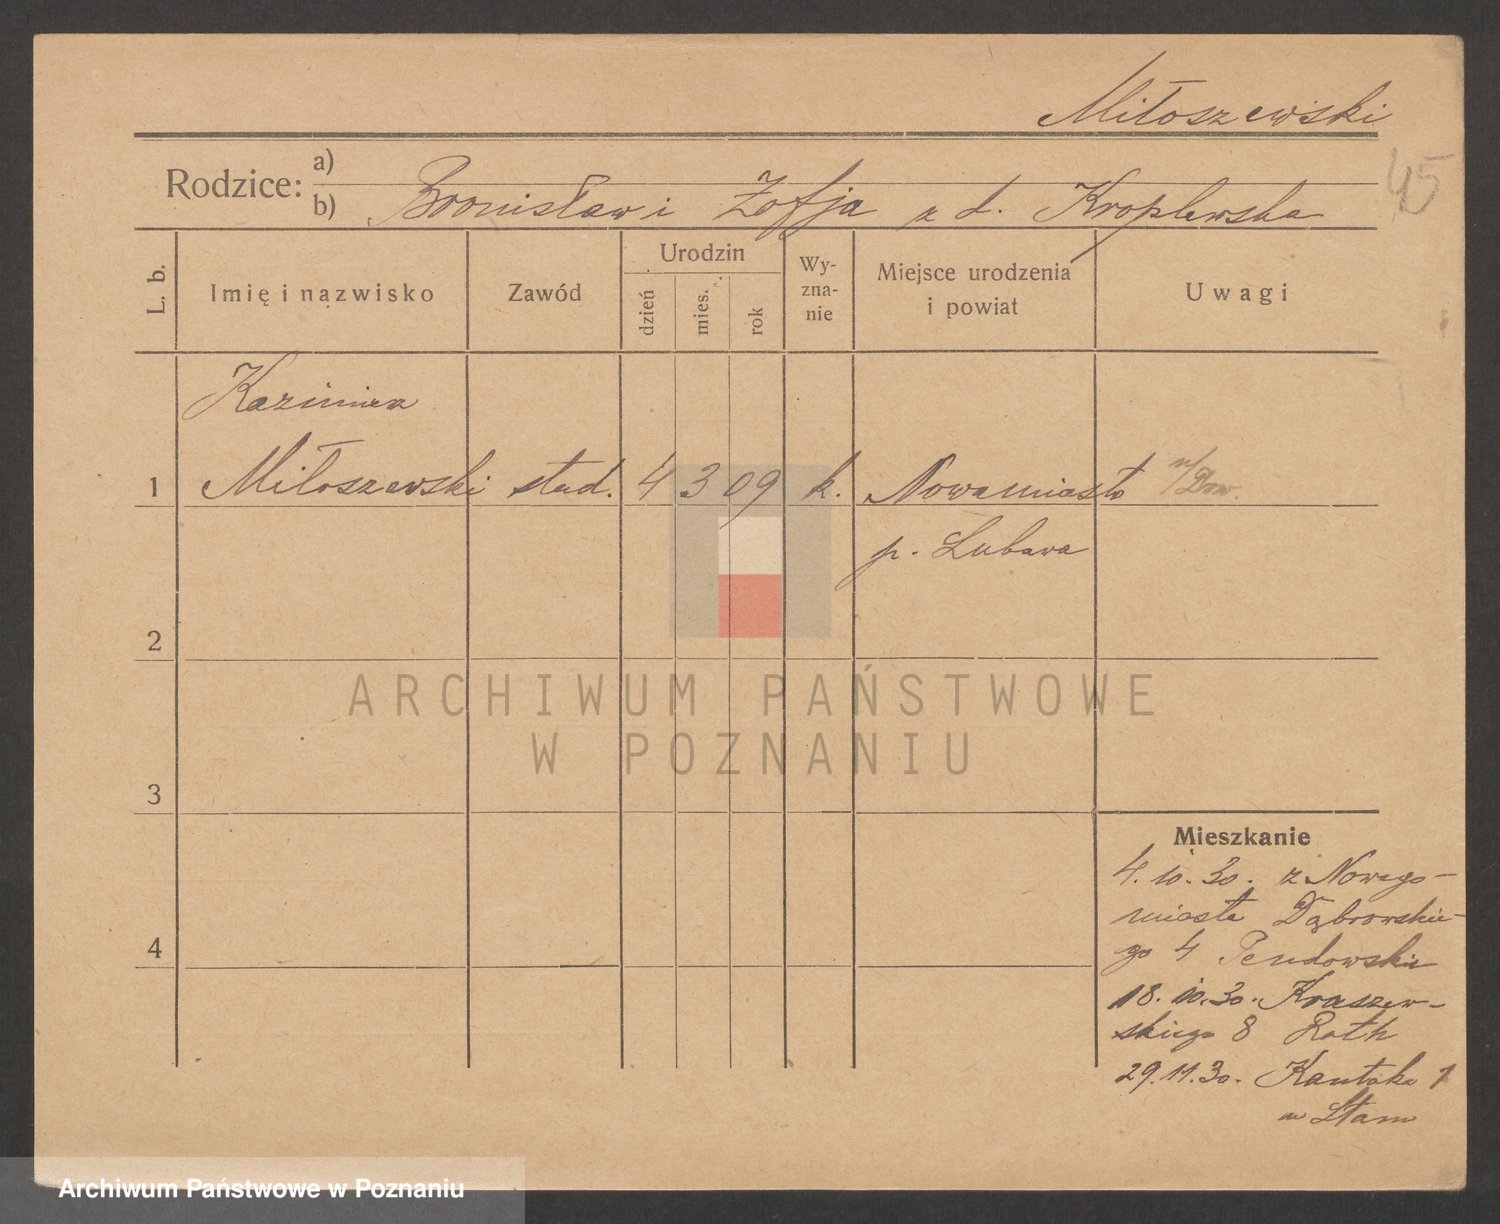 Miłoszewski
45
Rodzice:
a)
b) Bronisław i Zofja z d. Kroplewska
L. b.
Imię i nazwisko
Zawód
Urodzin
dzień
mies.
rok
Wy-
zna-
nie
Miejsce urodzenia
i powiat
Uwagi
Kazimierz
1 Miłoszewski stud. 4 3 09 k. Nowemiasto n/Drw.
p. Lubawa
2
ARCHIWUM PAŃSTWOWE
W POZNANIU
3
Mieszkanie
4. 10. 30. z Nowego-
miasta Dąbrowskie-
go 4
4
18. 10. 30. Kraszew-
skiego 8 Roth
29. 11. 30. Kantaka 1
Archiwum Państwowe w Poznaniu